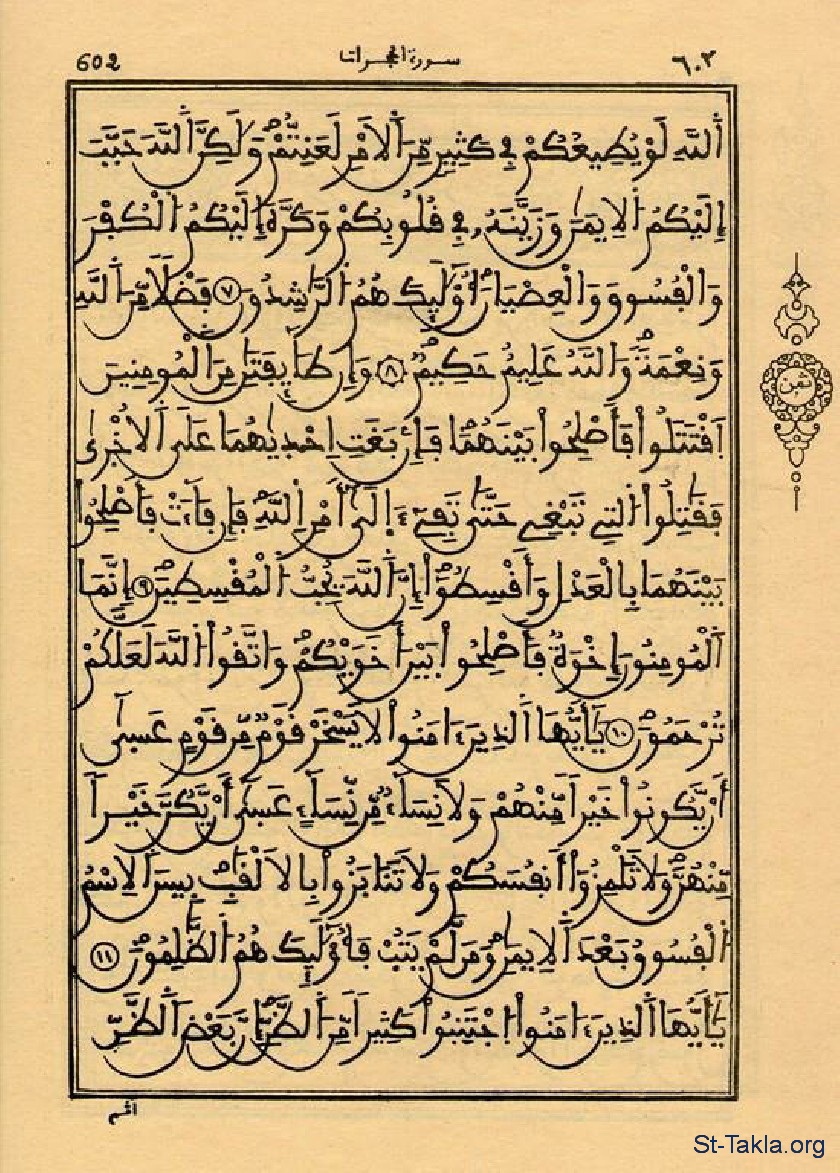 602 سورة الحجرات ٦٠٢
أَللَّهِ لَوْ يُطِيعُكُمْ فِے كَثِيرٍ مِّنَ أَلَامْرِ لَعَنِتُّمْ وَلَٰكِنَّ أَللَّهَ حَبَّبَ
إِلَيْكُمُ أُلِايمَٰنَ وَزَيَّنَهُۥ فِے قُلُوبِكُمْ وَكَرَّهَ إِلَيْكُمُ أُلْكُفْرَ
وَالْفُسُوقَ وَالْعِصْيَانَ أُوْلَٰٓئِكَ هُمُ أُلرَّٰشِدُونَ ٧ فَضْلًا مِّنَ أَللَّهِ
وَنِعْمَةً وَاللَّهُ عَلِيمٌ حَكِيمٌ ٨ وَإِن طَآئِفَتَٰنِ مِنَ أَلْمُومِنِينَ
اَقْتَتَلُواْ فَأَصْلِحُواْ بَيْنَهُمَا فَإِنۢ بَغَتِ اِحْدَيٰهُمَا عَلَي أَلُاخْرَىٰ
فَقَٰتِلُواْ أُلتِے تَبْغِے حَتَّىٰ تَفِےٓءَ اِلَىٰٓ أَمْرِ اِللَّهِ فَإِن فَآءَتْ فَأَصْلِحُواْ
بَيْنَهُمَا بِالْعَدْلِ وَأَقْسِطُوٓاْ إِنَّ أَللَّهَ يُحِبُّ أُلْمُقْسِطِينَ ٩ إِنَّمَا
أَلْمُومِنُونَ إِخْوَةٌ فَأَصْلِحُواْ بَيْنَ أَخَوَيْكُمْ وَاتَّقُواْ أُللَّهَ لَعَلَّكُمْ
تُرْحَمُونَ ١٠ يَٰٓأَيُّهَا أَلذِينَ ءَامَنُواْ لَا يَسْخَرْ قَوْمٌ مِّن قَوْمٍ عَسَىٰٓ
أَنْ يَّكُونُواْ خَيْراً مِّنْهُمْ وَلَا نِسَآءٌ مِّن نِّسَآءٍ عَسَىٰٓ أَنْ يَّكُنَّ خَيْراً
مِّنْهُنَّ وَلَا تَلْمِزُوٓاْ أَنفُسَكُمْ وَلَا تَنَابَزُواْ بِالَالْقَٰبِ بِيسَ أَلِاسْمُ
أُلْفُسُوقُ بَعْدَ أَلِايمَٰنِ وَمَن لَّمْ يَتُبْ فَأُوْلَٰٓئِكَ هُمُ أُلظَّٰلِمُونَ ١١
يَٰٓأَيُّهَا أَلذِينَ ءَامَنُواْ اُجْتَنِبُواْ كَثِيراً مِّنَ أَلظَّنِّ إِنَّ بَعْضَ أَلظَّنِّ
ثمن
اثم
St-Takla.org